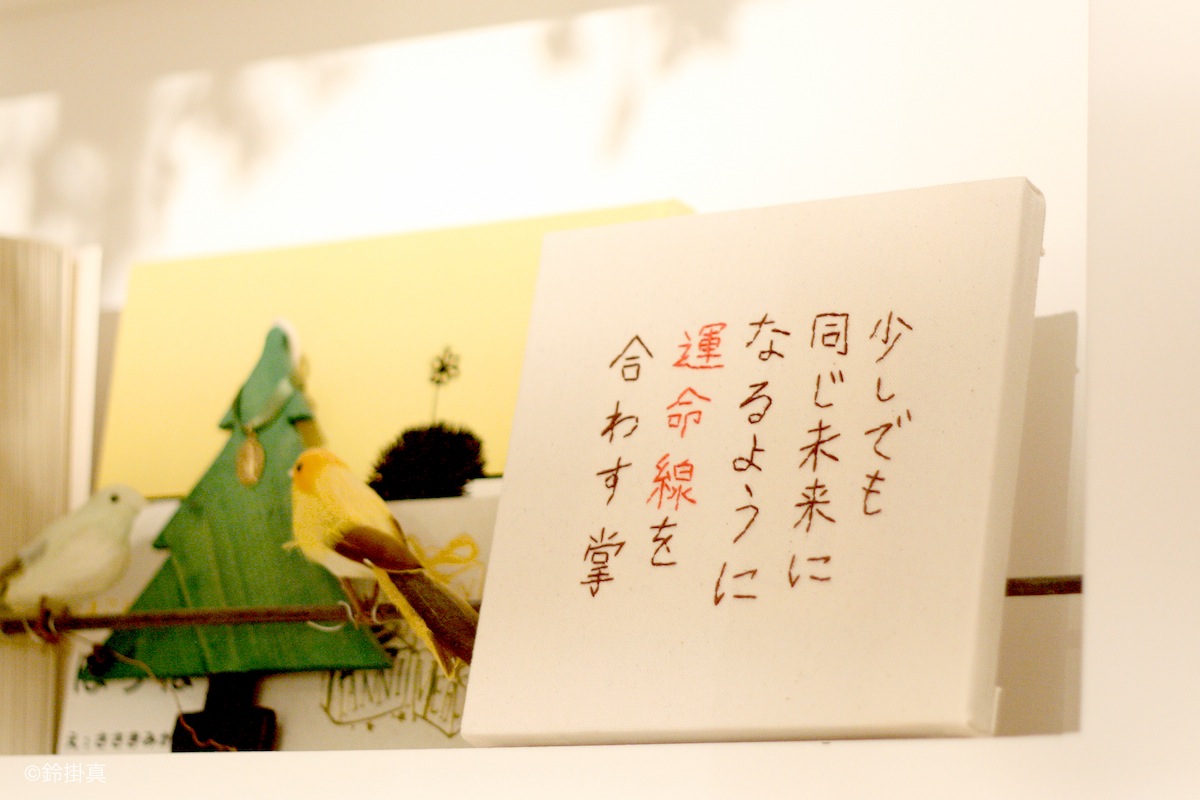 少しでも
同じ未来に
なるように
運命線を
合わす掌
え:ささきみ
©鈴掛真